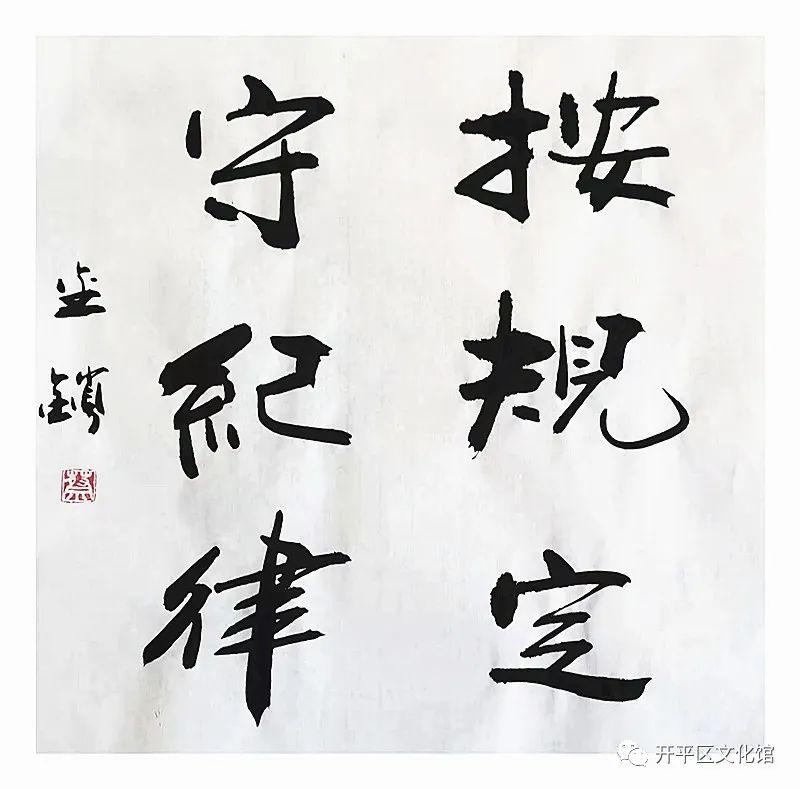 按規定
守紀律
开平区文化馆